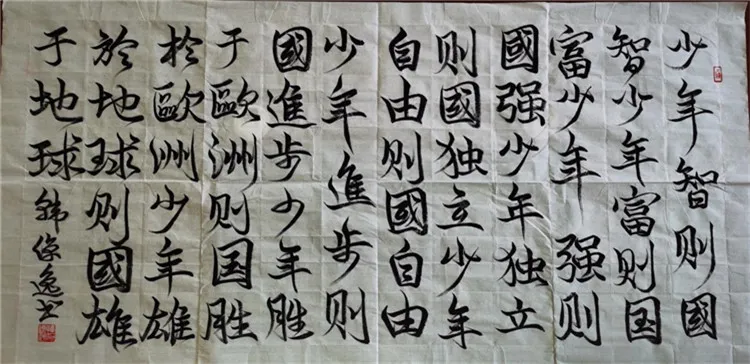 少年智则國
智少年富则国
富少年强则
國强少年独立
则國独立少年
自由则國自由
少年進步则
國進步少年胜
于歐洲则国胜
於歐洲少年雄
於地球则國雄
于地球
韩逸书